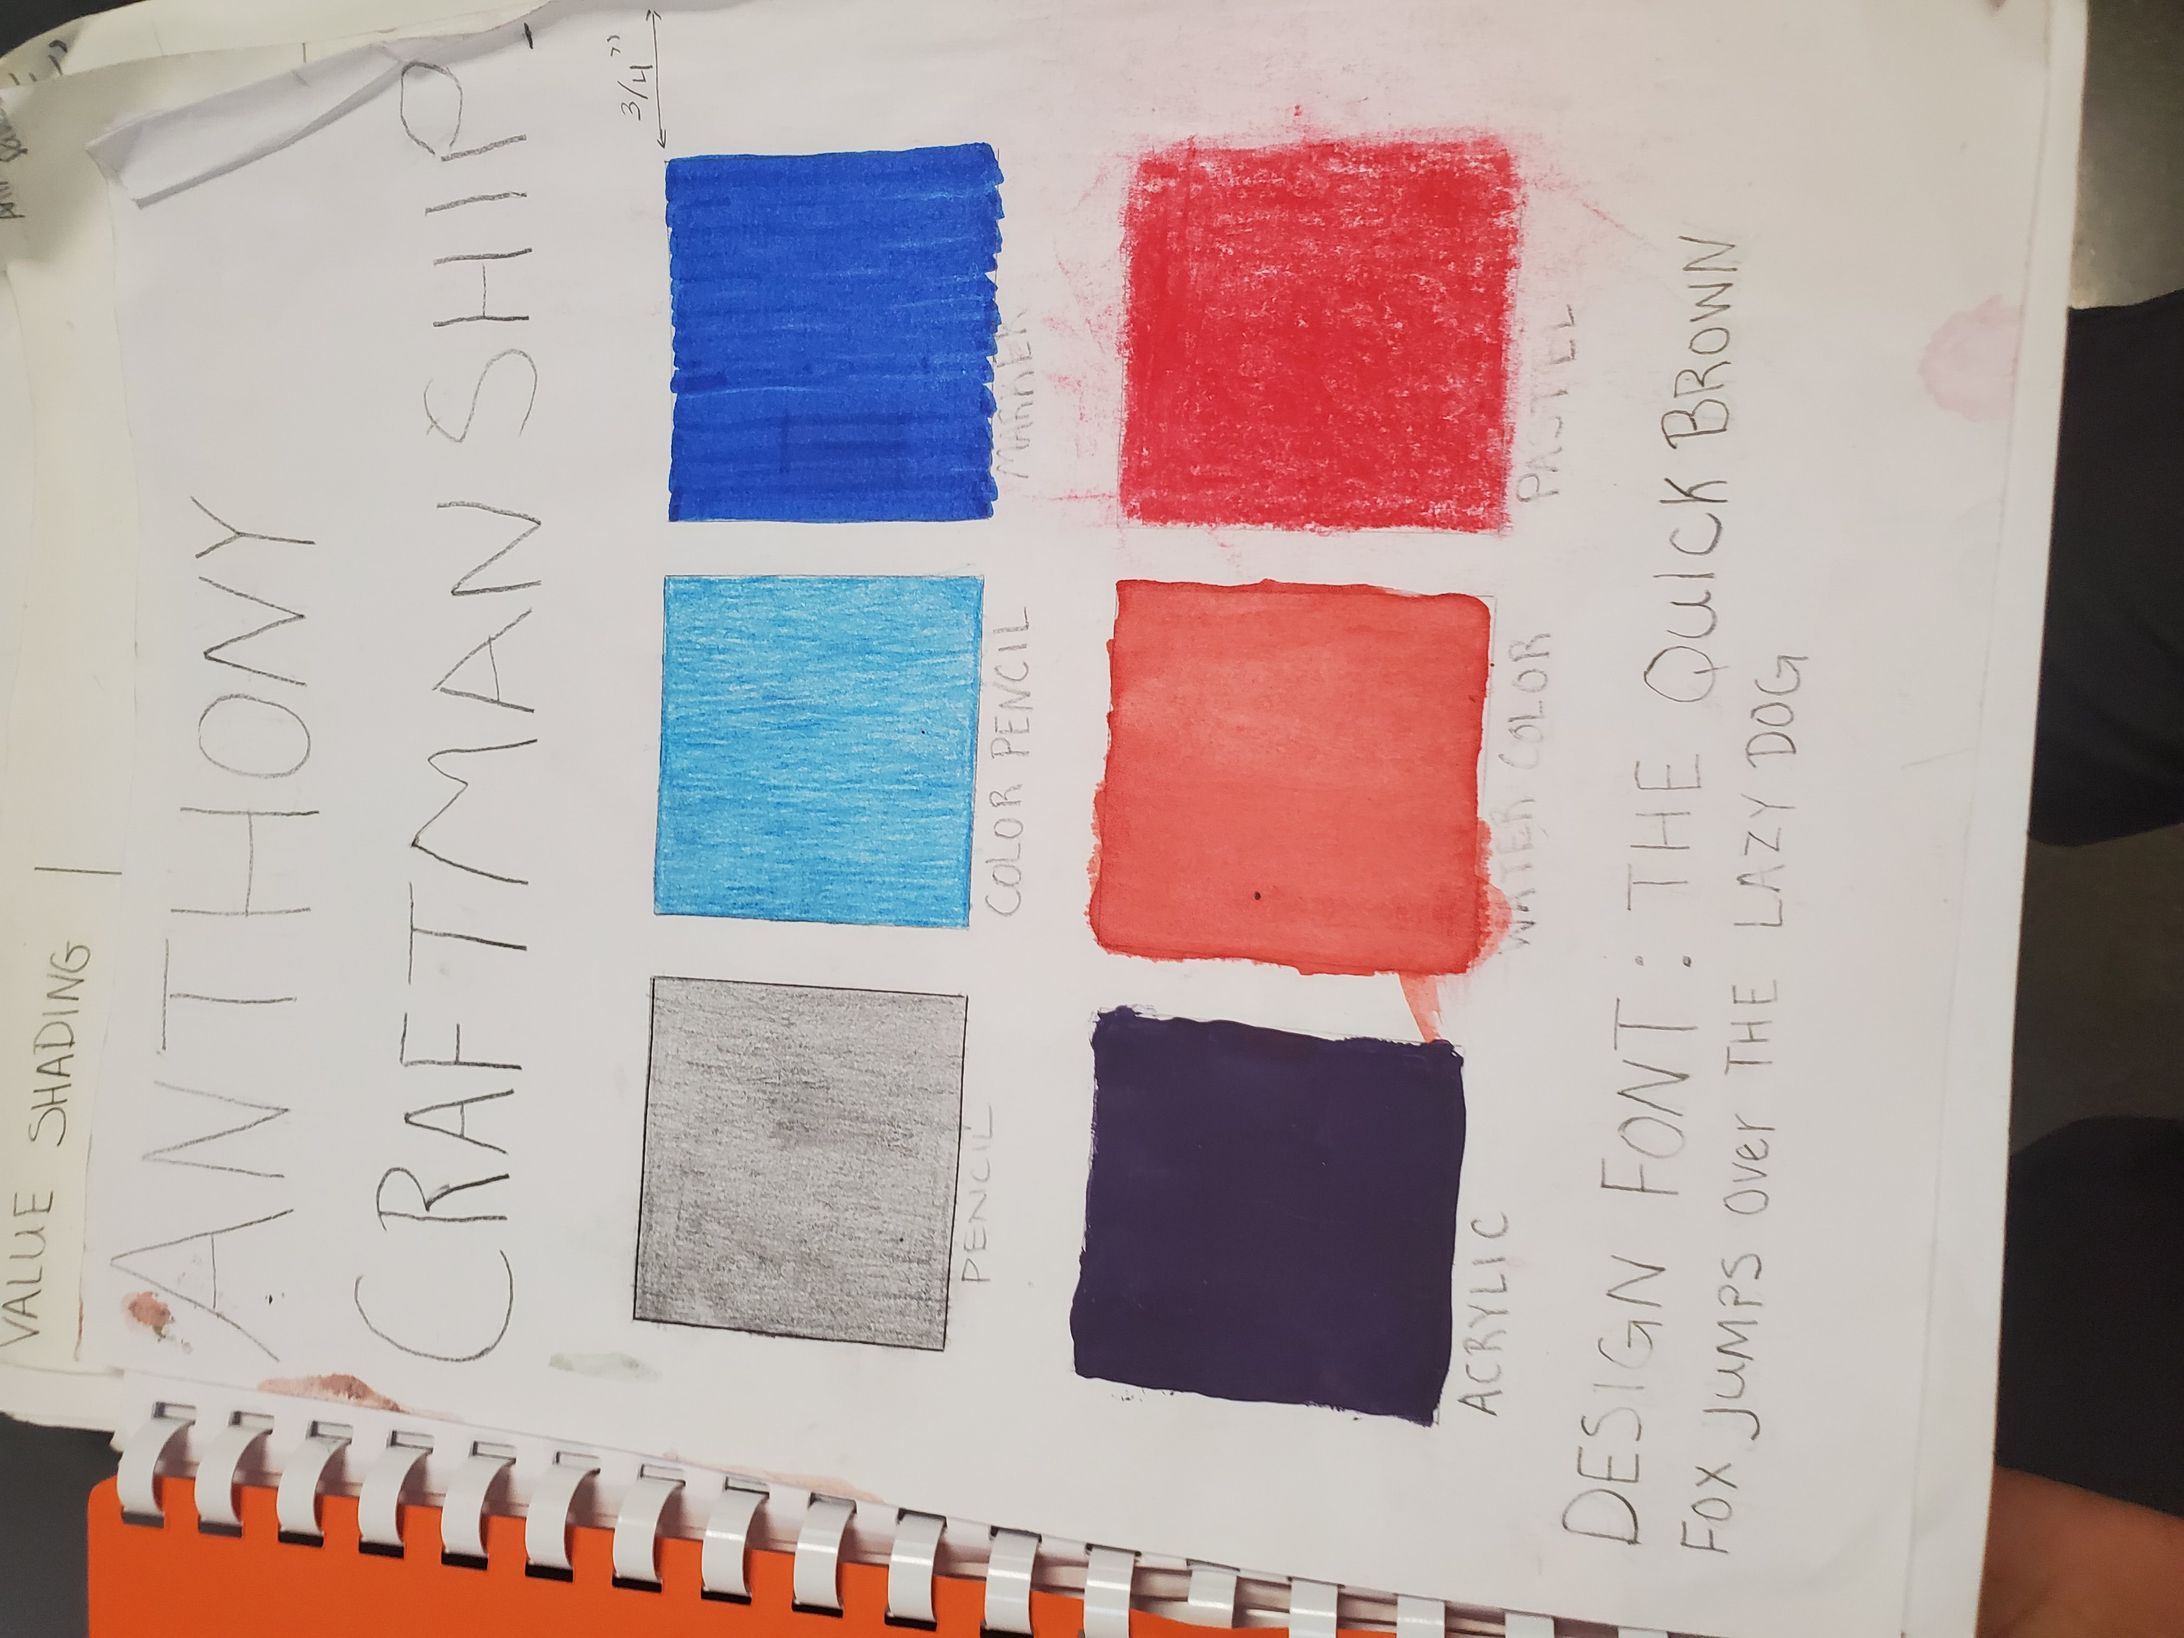 VALUE SHADING
ANTHONY
CRAFTMANSHIP
3/4"
PENCIL
COLOR PENCIL
MARKER
ACRYLIC
WATER COLOR
PASTEL
DESIGN FONT: THE QUICK BROWN
FOX JUMPS OVER THE LAZY DOG